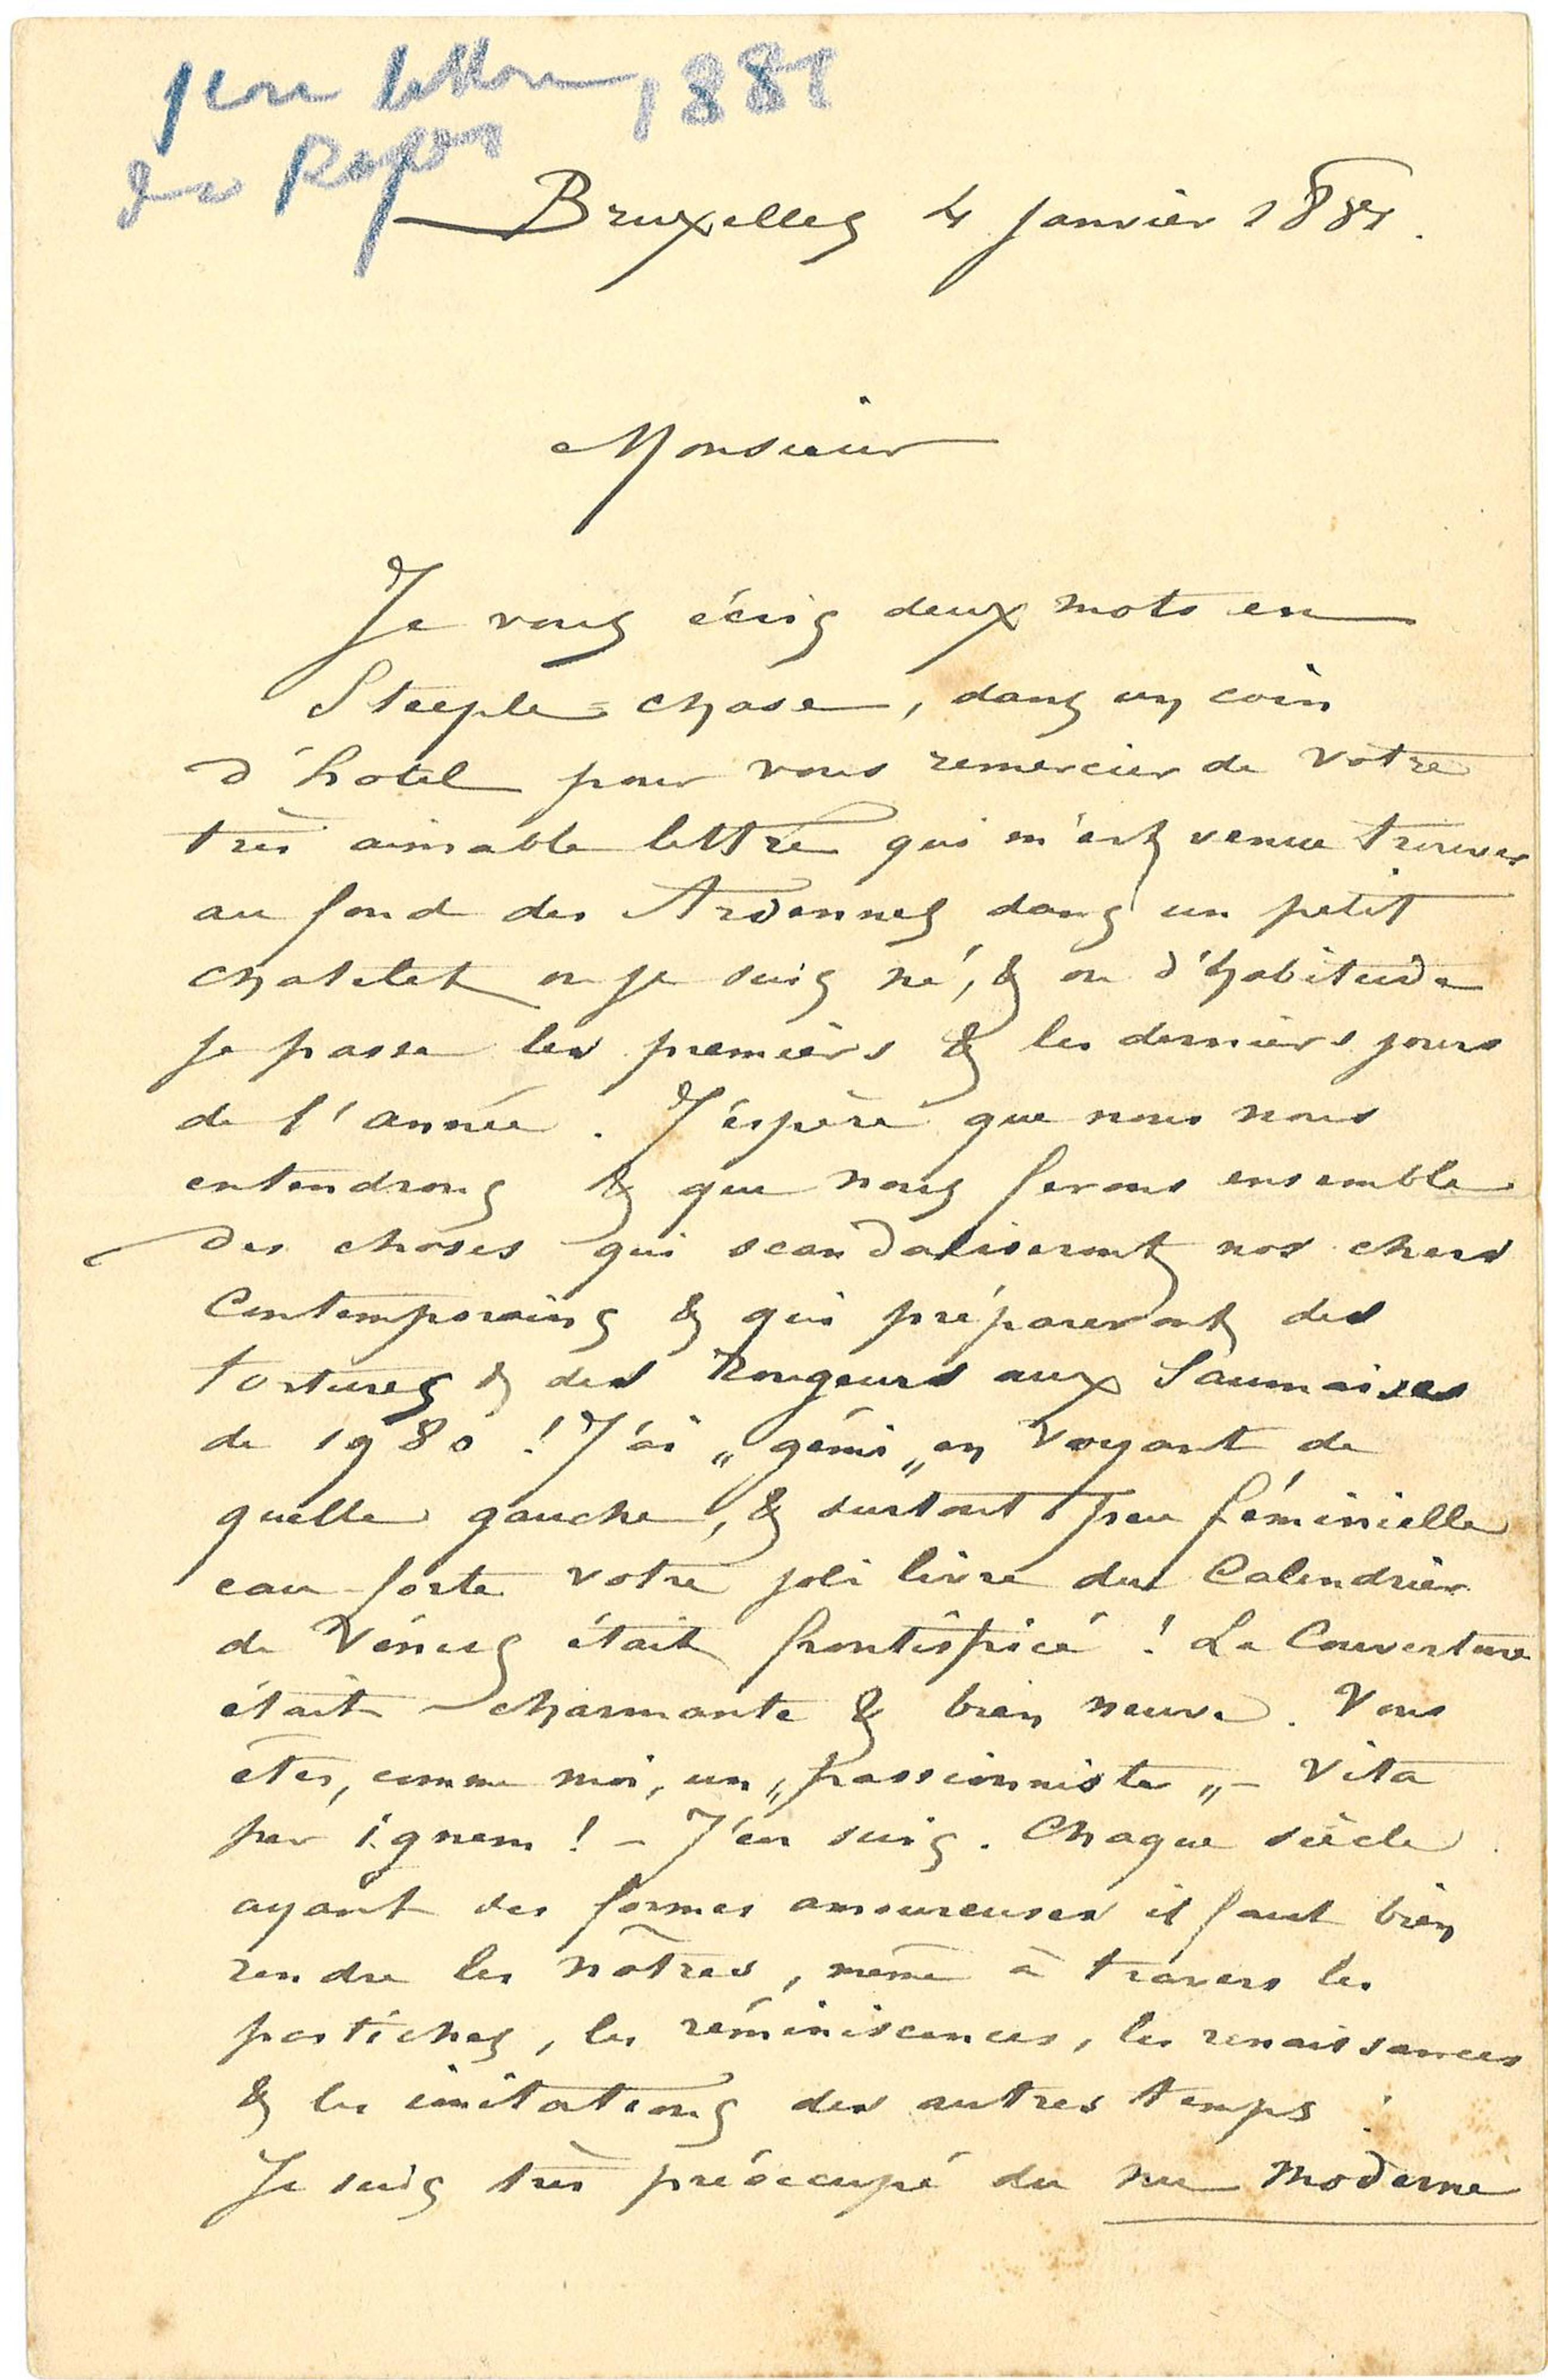 1ere lettre 1881
de Rops
Bruxelles 4 janvier 1881.
Monsieur
Je vous écris deux mots en
Steeple=chase, dans un coin
d'hotel pour vous remercier de votre
très aimable lettre qui m'est venue trouver
au fond des Ardennes dans un petit
chatelet ou je suis né, & ou d'habitude
je passe les premiers & les derniers jours
de l'année. J'éspère que nous nous
entendrons & que nous ferons ensemble
des choses qui scandaliseront nos chers
Contemporains & qui prépareront des
tortures & des Rougeurs aux Saumaises
de 1980 ! J'ai „gémi„ en voyant de
quelle gauche, & surtout peu féminielle
eau-forte votre joli livre du Calendrier
de Vénus était frontispicé ! La Couverture
était charmante & bien neuve. Vous
êtes, comme moi, un „passionniste„ – Vita
per ignem ! – J'en suis. Chaque siècle
ayant des formes amoureuses il faut bien
rendre les nôtres, même à travers les
pastiches, les réminiscences, les renaissances
& les imitations des autres temps.
Je suis très préoccupé du nu moderne